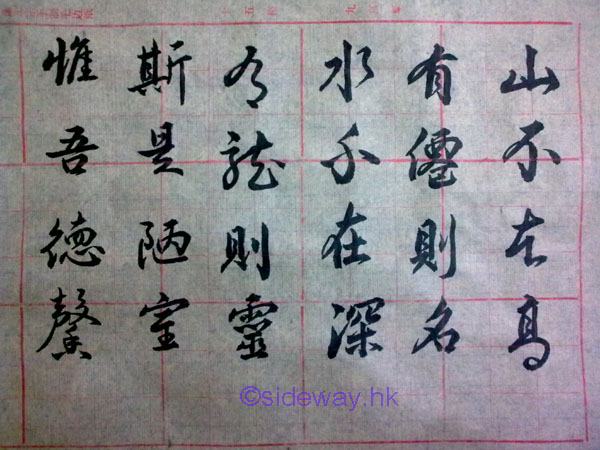 山不在高
有僊則名
水不在深
有龍則靈
斯是陋室
惟吾德馨
©sideway.hk